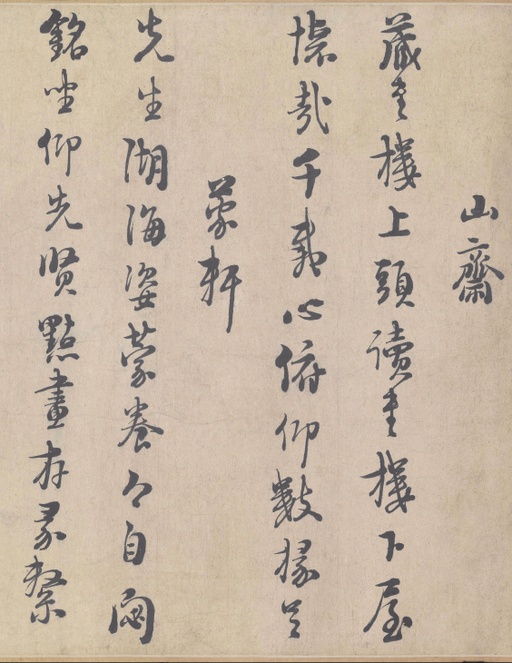 山齋
藏書樓上頭讀書樓下屋
懷哉千載心俯仰數椽足
蒙軒
先生湖海姿蒙養今自閟
銘坐仰先賢點畫存彖繫